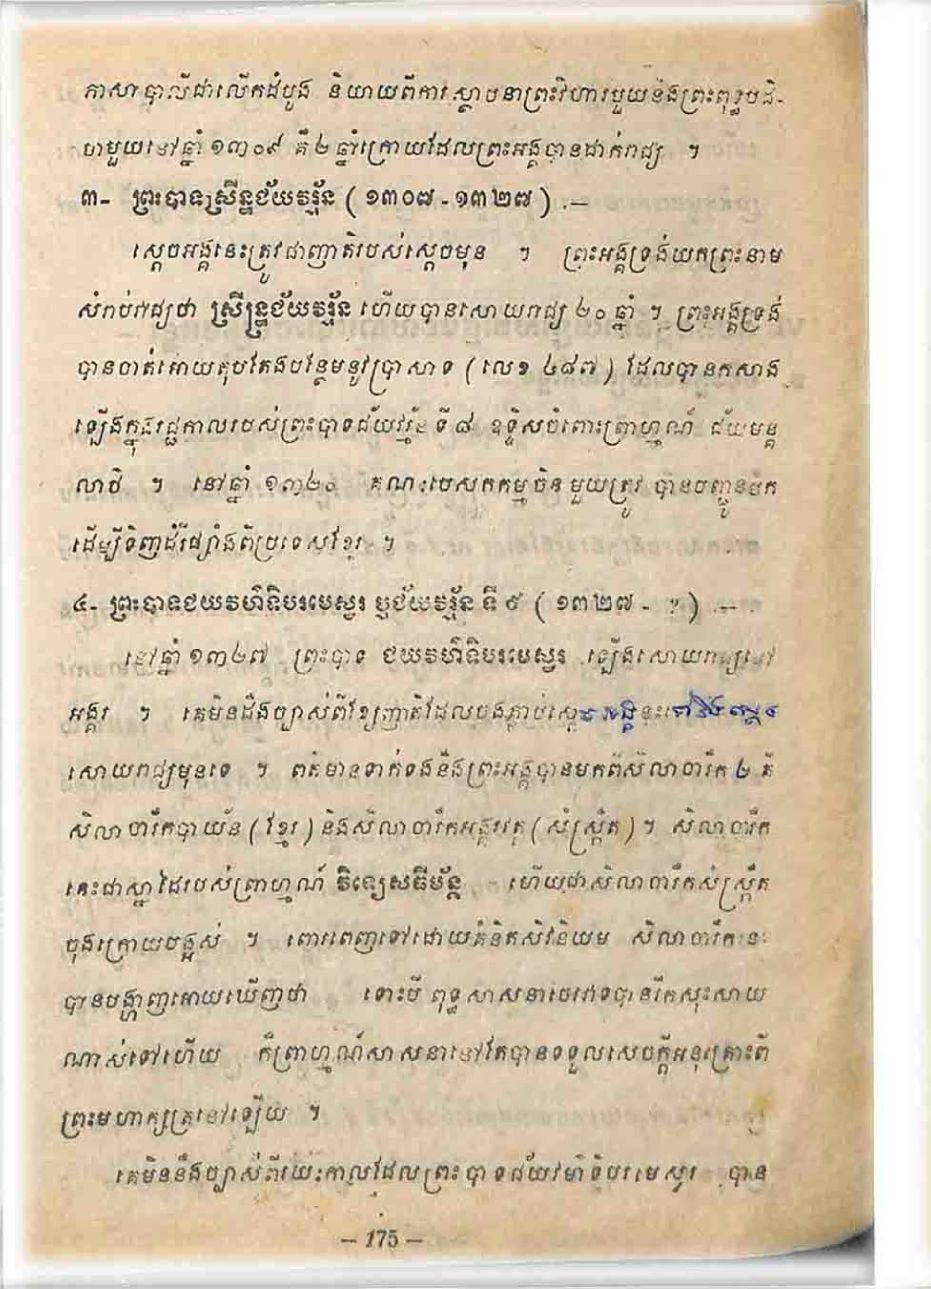 ភាសាបាលីជាលើកដំបូង និយាយពីការស្ថាបនាព្រះវិហារមួយនិងព្រះពុទ្ធបដិ-
មាមួយនៅឆ្នាំ ១៣០៩ គឺ ២ ឆ្នាំក្រោយដែលព្រះអង្គបានដាក់រាជ្យ ។
៣- ព្រះបាទស្រីន្ទជ័យវរ្ម័ន ( ១៣០៧ - ១៣២៧ ) .—
ស្ដេចអង្គនេះត្រូវជាញាតិរបស់ស្ដេចមុន ។ ព្រះអង្គទ្រង់យកព្រះនាម
សំរាប់រាជ្យថា ស្រីន្ទ្រជ័យវរ្ម័ន ហើយបានសោយរាជ្យ ២០ ឆ្នាំ ។ ព្រះអង្គទ្រង់
បានចាត់អោយតុបតែងបន្ថែមនូវប្រាសាទ ( លេខ ៤៨៧ ) ដែលបានកសាង
ឡើងក្នុងរជ្ជកាលរបស់ព្រះបាទជ័យវរ្ម័ន ទី ៨ ឧទ្ទិសចំពោះព្រាហ្មណ៍ ជ័យមង្គ
លាថិ ។ នៅឆ្នាំ ១៣២០ គណៈបេសកកម្មចិនមួយត្រូវ បានបញ្ជូនមក
ដើម្បីទិញដំរីផ្សាំងពីប្រទេសខ្មែរ ។
៤- ព្រះបាទជយវហ៌ទិបរមេស្វរ ឬជ័យវរ្ម័ន ទី ៩ ( ១៣២៧ - ? ) .— .
នៅឆ្នាំ ១៣២៧ ព្រះបាទ ជយវហ៌ទិបរមេស្វរ ឡើងសោយរាជ្យនៅ
អង្គរ ។ គេមិនដឹងច្បាស់ពីខ្សែញាតិដែលចងភ្ជាប់ស្ដេចអង្គនេះទៅនឹងស្ដេច
សោយរាជ្យមុនទេ ។ ពត៌មានទាក់ទងនឹងព្រះអង្គបានមកពីសិលាចារឹក ២ គឺ
សិលាចារឹកបាយ័ន ( ខ្មែរ ) និងសិលាចារឹកអង្គរវត្ត ( សំស្ក្រឹត ) ។ សិលាចារឹក
នេះជាស្នាដៃរបស់ព្រាហ្មណ៍ វិទ្យេសធីម័ន្ត ហើយជាសិលាចារឹកសំស្ក្រឹត
ចុងក្រោយបង្អស់ ។ ពោរពេញទៅដោយគំនិតសិវនិយម សិលាចារឹកនេះ
បានបង្ហាញអោយឃើញថា ទោះបី ពុទ្ធសាសនាថេរវាទបានរីកសុះសាយ
ណាស់ទៅហើយ ក៏ព្រាហ្មណ៍សាសនានៅតែបានទទួលសេចក្ដីអនុគ្រោះពី
ព្រះមហាក្សត្រនៅឡើយ ។
គេមិននឹងច្បាស់ពីរយៈកាលដែលព្រះបាទជ័យវមាទិបរមេស្វរ បាន
– 175 –